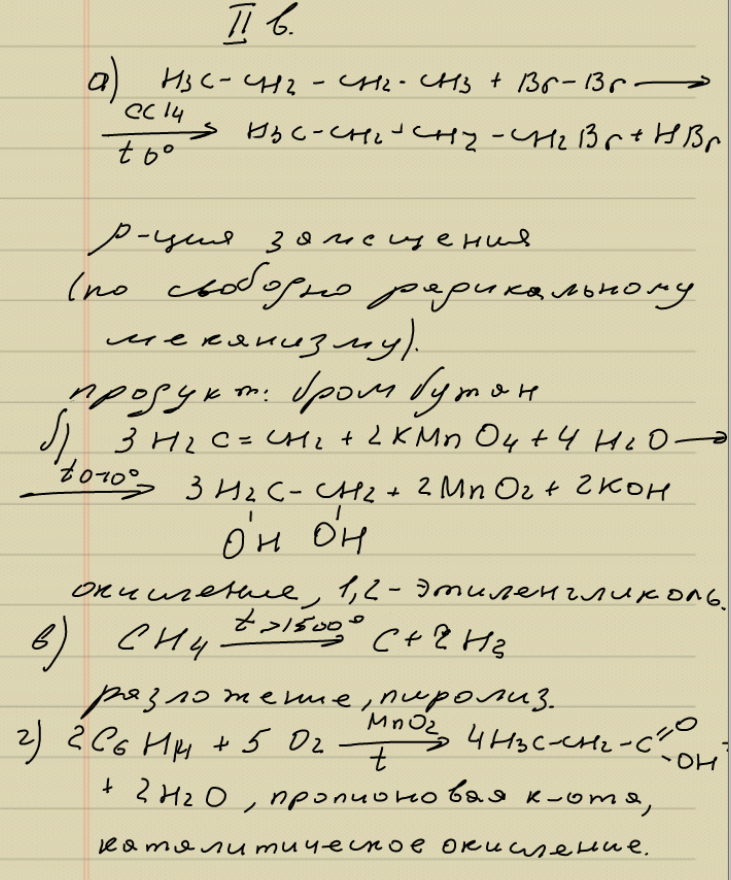 II в.
а) H3C-CH2-CH2-CH3 + Br-Br ⟶
CCl4 t 6° ⟶ H3C-CH2-CH2-CH2Br + HBr
р-ция замещения
(по свободно радикальному
механизму).
продукт: бром бутан
б) 3H2C=CH2 + 2KMnO4 + 4H2O ⟶
t 0-10° ⟶ 3H2C-CH2 + 2MnO2 + 2KOH
OH OH
окисление, 1,2-этиленгликоль.
в) CH4 t>1500° ⟶ C+2H2
разложение, пиролиз.
г) 2C6H14 + 5O2 MnO2 t ⟶ 4H3C-CH2-C=O -OH +
+ 2H2O, пропионовая к-ота,
каталитическое окисление.